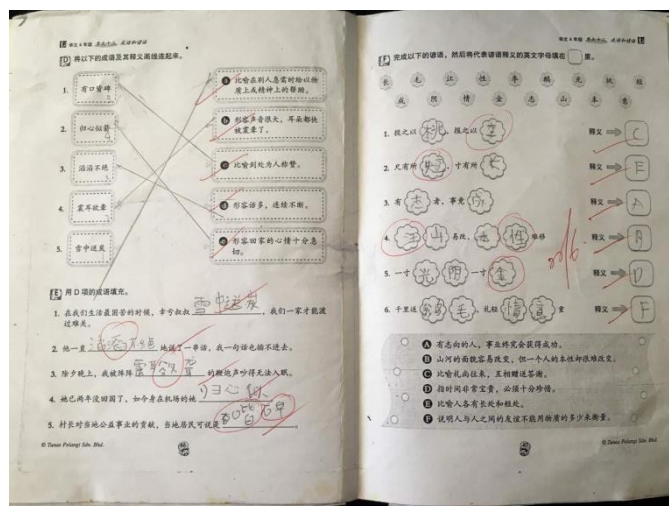 华文 4 年级 单元十二 成语和谚语
D 将以下的成语及其释义画线连起来。
1. 有口皆碑
a 比喻在别人急需时给以物质上或精神上的帮助。
2. 归心似箭
b 形容声音很大，耳朵都快被震聋了。
3. 滔滔不绝
c 比喻到处为人称赞。
4. 震耳欲聋
d 形容话多，连续不断。
5. 雪中送炭
e 形容回家的心情十分急切。
E 用 D 项的成语填充。
1. 在我们生活最困苦的时候，幸亏叔叔 雪中送炭 ，我们一家才能渡过难关。
2. 他一直 滔滔不绝 地说了一串话，我一句话也插不进去。
3. 除夕晚上，我被阵阵 震耳欲聋 的鞭炮声吵得无法入眠。
4. 她已两年没回国了，如今身在机场的她 归心似
5. 村长对当地公益事业的贡献，当地居民可说是
© Tunas Pelangi Sdn. Bhd.
华文 4 年级 单元十二 成语和谚语
F 完成以下的谚语，然后将代表谚语释义的英文字母填在 里。
长 毛 江 性 李 鹅 光 桃 短
成 阴 情 金 志 山 本 意
1. 投之以 桃 ，报之以 李 释义 C
2. 尺有所 短 ，寸有所 长 释义 E
3. 有 志 者，事竟 释义 A
4. 江 山 易改， 性 难移 释义 B
5. 一寸 光 阴 一寸 金 释义 D
6. 千里送 鹅 毛 ，礼轻 情 意 重 释义 F
A 有志向的人，事业终究会获得成功。
B 山河的面貌容易改变，但一个人的本性却很难改变。
C 比喻礼尚往来，互相赠送答谢。
D 指时间非常宝贵，必须十分珍惜。
E 比喻人各有长处和短处。
F 说明人与人之间的友谊不能用物质的多少来衡量。
© Tunas Pelangi Sdn. Bhd.